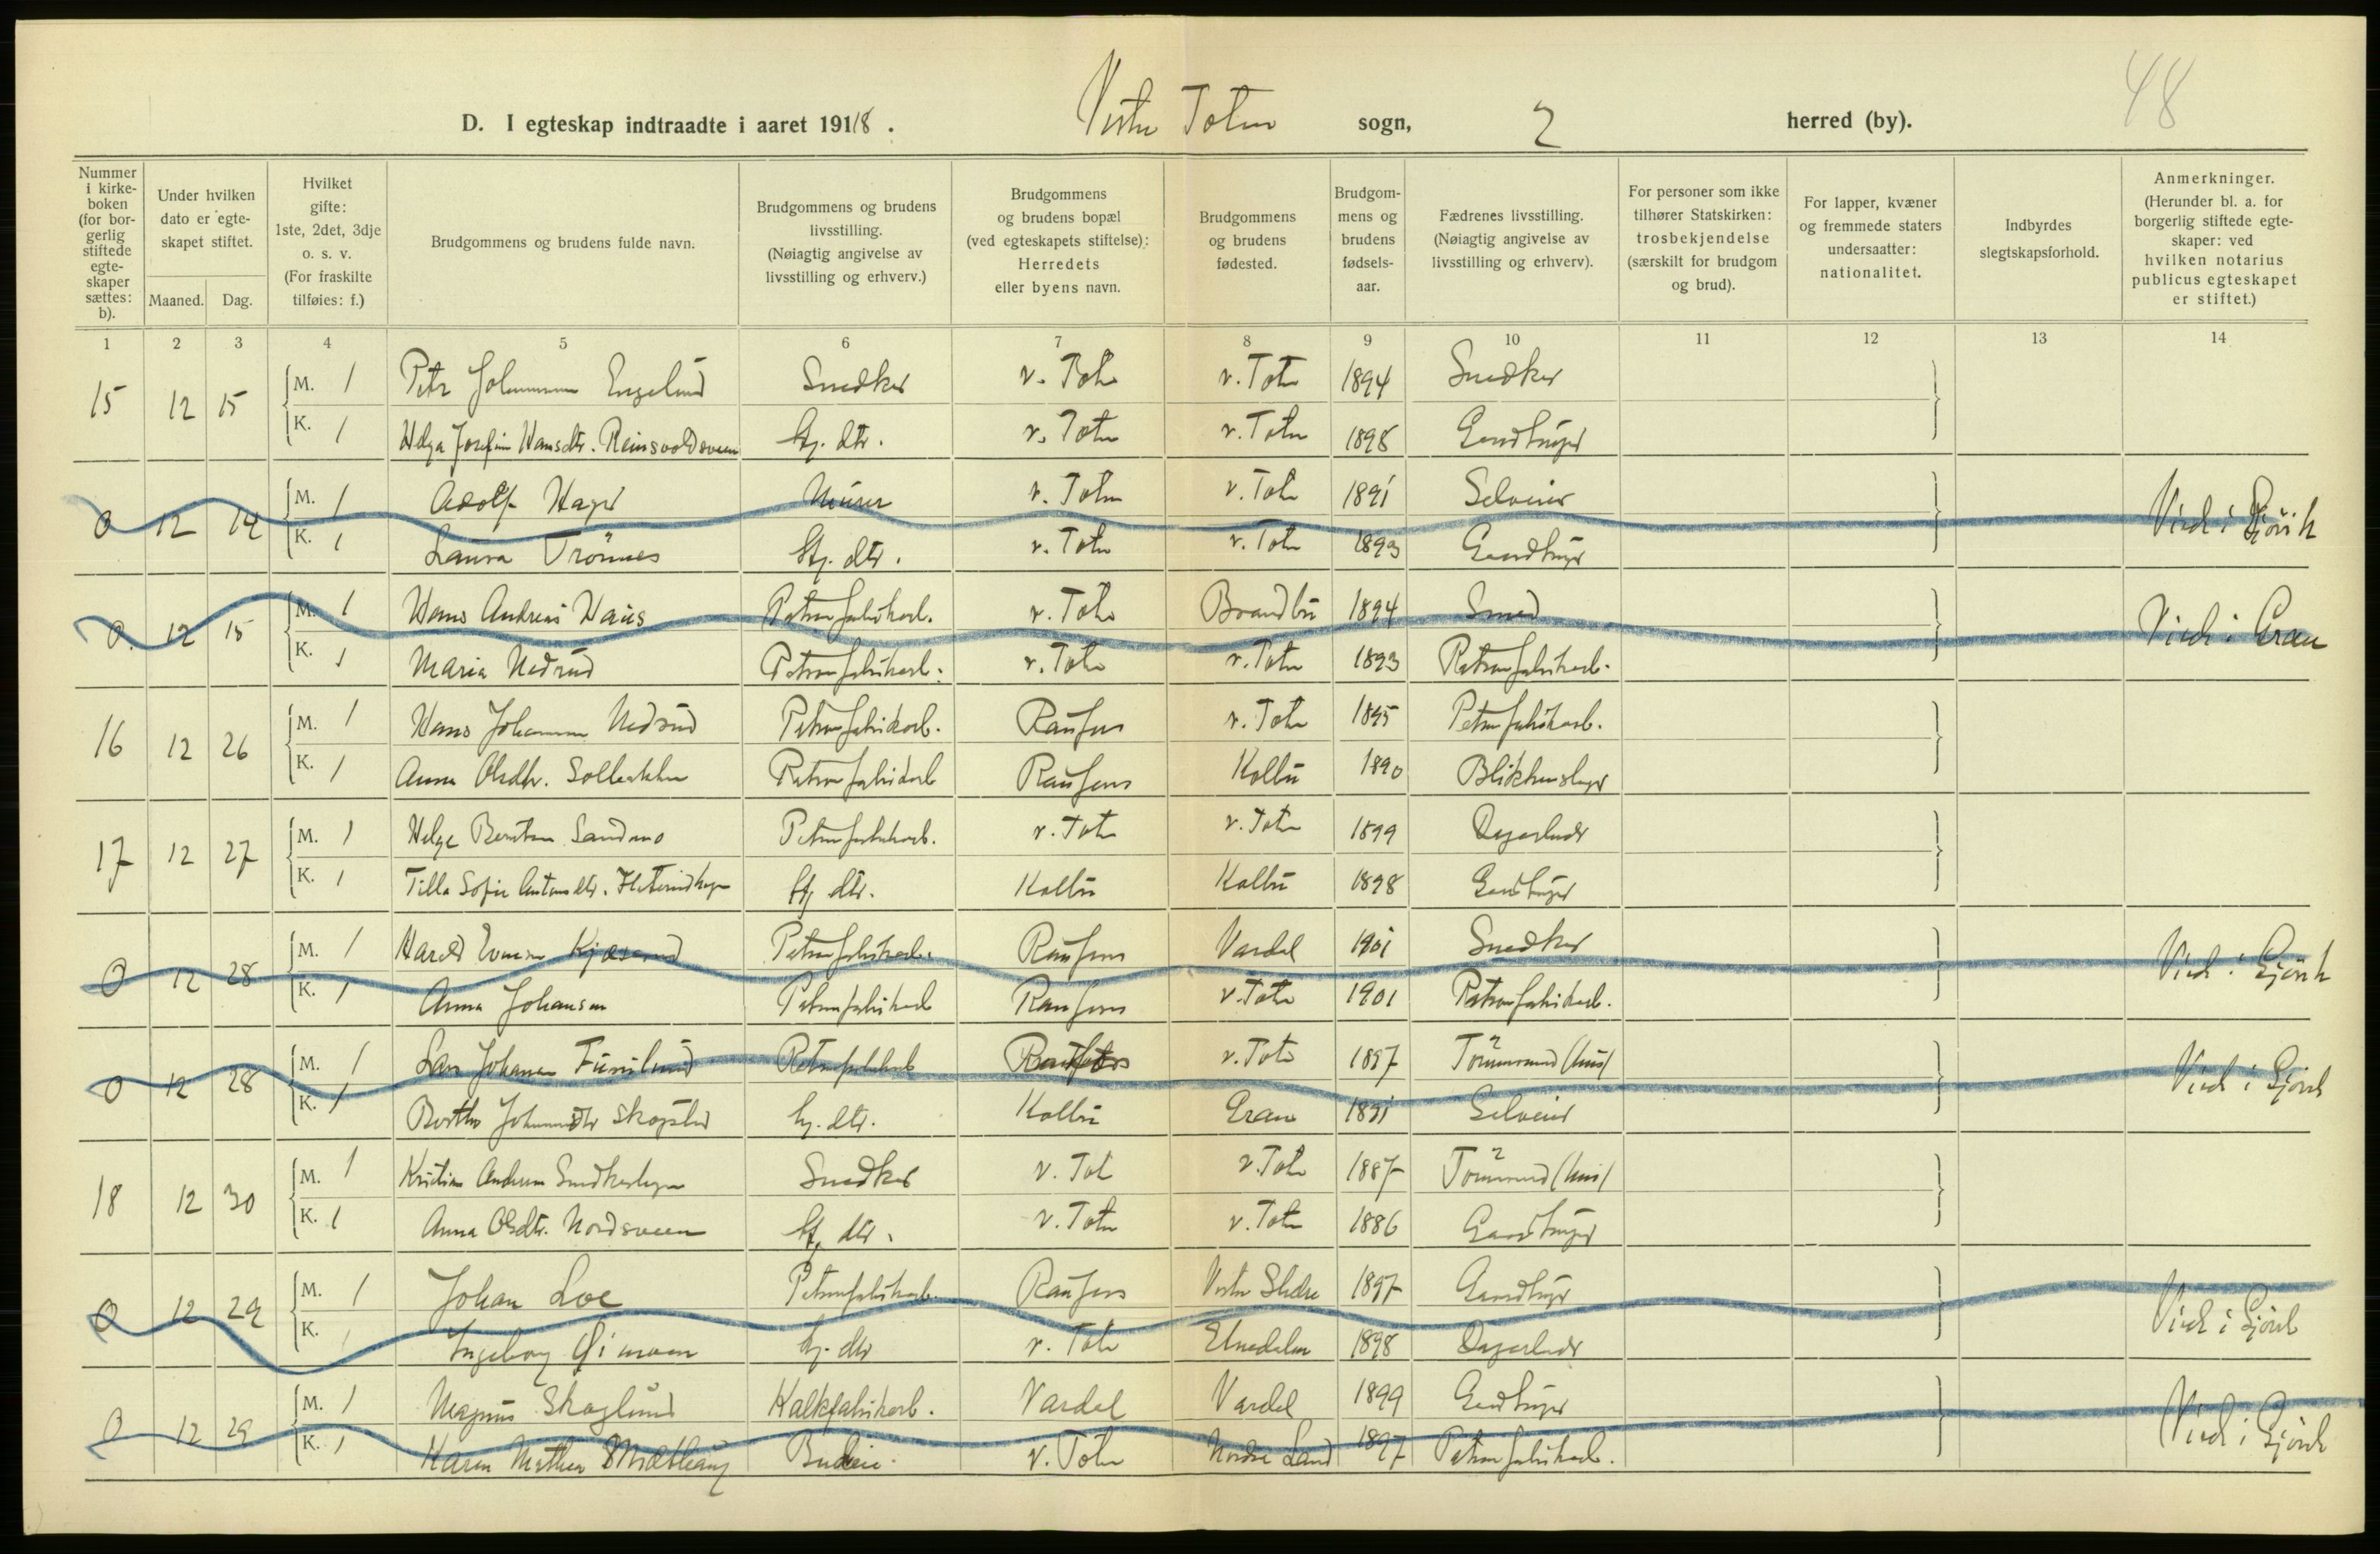 48
D. I egteskap indtraadte i aaret 1918. Vestre Toten sogn, 2 herred (by).
Nummer i kirkeboken (for borgerlig stiftede egteskaper sættes: b).
Under hvilken dato er egteskapet stiftet.
Maaned. Dag.
Hvilket gifte: 1ste, 2det, 3dje o. s. v. (For fraskilte tilføies: f.)
Brudgommens og brudens fulde navn.
Brudgommens og brudens livsstilling. (Nøiagtig angivelse av livsstilling og erhverv.)
Brudgommens og brudens bopæl (ved egteskapets stiftelse): Herredets eller byens navn.
Brudgommens og brudens fødested.
Brudgommens og brudens fødselsaar.
Fædrenes livsstilling. (Nøiagtig angivelse av livsstilling og erhverv).
For personer som ikke tilhører Statskirken: trosbekjendelse (særskilt for brudgom og brud).
For lapper, kvæner og fremmede staters undersaatter: nationalitet.
Indbyrdes slegtskapsforhold.
Anmerkninger. (Herunder bl. a. for borgerlig stiftede egteskaper: ved hvilken notarius publicus egteskapet er stiftet.)
1 2 3 4 5 6 7 8 9 10 11 12 13 14
15 12 15 M. 1 Petr Johannsen Engelund Snedker v. Toten v. Toten 1894 Snedker
K. 1 Helga Josefine Hansdtr. Reinsvoldsveen Hj. dtr. v. Toten v. Toten 1898 Gaardbruger
0 12 14 M. 1 Adolf Hager Murer v. Toten v. Toten 1891 Selveier Viede i Gjøvik
K. 1 Laura Trønnes Hj. dtr. v. Toten v. Toten 1893 Gaardbruger
0. 12 15 M. 1 Hans Andreas Haus Patronfabrikarb. v. Toten Brandbu 1894 Smed Viede i Gran
K. 1 Maria Nedrud Patronfabrikarb. v. Toten v. Toten 1893 Patronfabrikarb.
16 12 26 M. 1 Hans Johannsen Nedrud Patronfabrikarb. Raufoss v. Toten 1895 Patronfabrikarb.
K. 1 Anna Olsdtr. Sollebakken Patronfabrikarb Raufoss Kolbu 1890 Blikkenslager
17 12 27 M. 1 Helge Berntsen Sandmo Patronfabrikarb. v. Toten v. Toten 1899 Dagarbeider
K. 1 Tilla Sofie Antonsdtr. Hj. dtr. Kolbu Kolbu 1898 Gaardbruger
0 12 28 M. 1 Harald Kjøserud Patronfabrikarb. Raufoss Vardal 1901 Snedker Viede i Gjøvik
K. 1 Anna Johansen Patronfabrikarb Raufoss v. Toten 1901 Patronfabrikarb.
0 12 28 M. 1 Lars Johansen Furulund Patronfabrikarb Raufoss v. Toten 1897 Tømmermand (hus) Viede i Gjøvik
K. 1 Berthe Johannsdtr Skogstad Hj. dtr. Kolbu Gran 1891 Selveier
18 12 30 M. 1 Kristian Andersen Snedkerhagen Snedker v. Tot v. Toten 1887 Tømmermand (hus)
K. 1 Anna Olsdtr. Nordsveen Hj. dtr. v. Toten v. Toten 1886 Gaardbruger
0 12 29 M. 1 Johan Loe Patronfabrikarb. Raufoss Vestre Slidre 1897 Gaardbruger Viede i Gjøvik
K. 1 Ingeborg Gimoen Hj. dtr v. Toten Etnedalen 1898 Dagarbeider
0 12 29 M. 1 Magnus Skoglund Kalkfabrikarb. Vardal Vardal 1899 Gaardbruger Viede i Gjøvik
K. 1 Karen Mathea Budeie. v. Toten Nordre Land 1897 Patronfabrikarb.